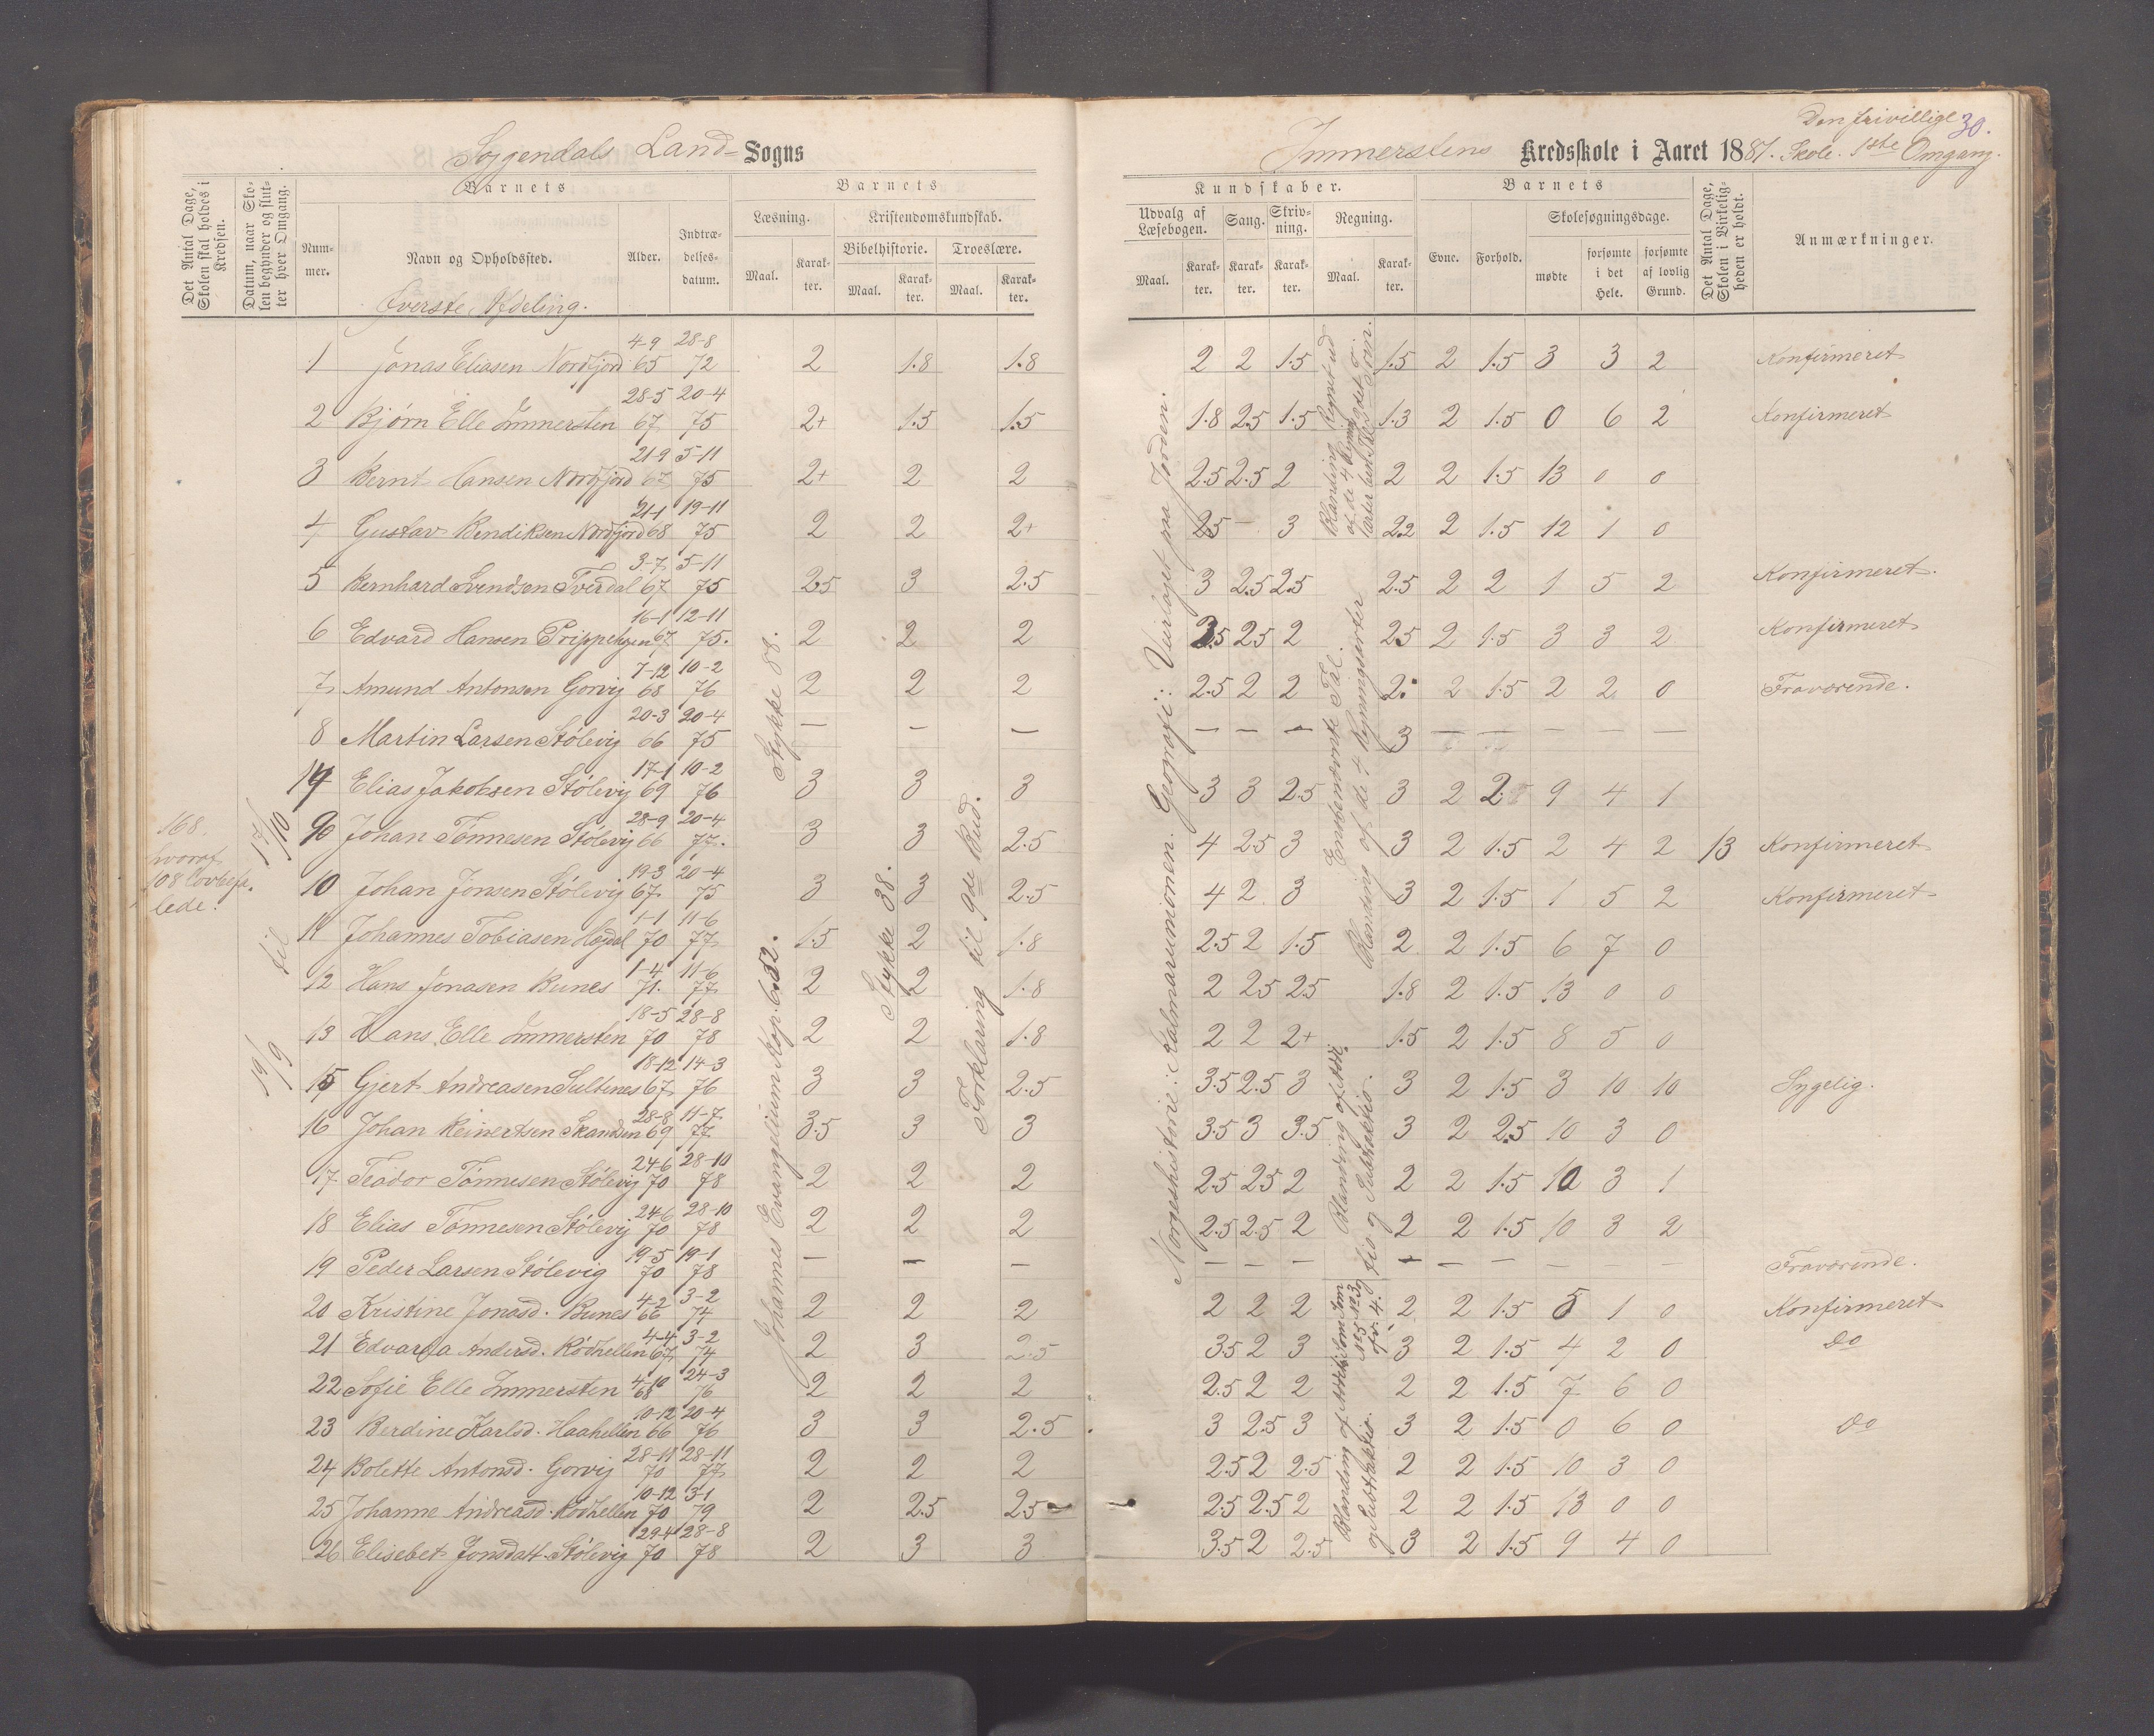 Sogndals Land- Sogns
Det Antal Dage, Skolen skal holdes i Kredsen.
Datum, naar Skolen begynder og slutter hver Omgang.
Barnets
Barnets
Nummer.
Navn og Opholdssted.
Alder.
Indtrædelsesdatum.
Læsning.
Kristendomskundskab.
Bibelhistorie.
Troeslære.
Maal.
Karakter.
Maal.
Karakter.
Maal.
Karakter.
Øverste Afdeling.
168.
hvoraf
108 lovbefa.
lede.
19/9 til 17/10
Johannes Evangelium Kap. 6.52. Stykke 88.
Stykke 38.
Forklaring til 9de Bud.
1 Jonas Eliasen Nordfjord 4-9 65 28-8 72 2 1.8 1.8
2 Bjørn Elle Immersten 28-5 67 20-4 75 2+ 1.5 1.5
3 Bernt Hansen Nordfjord 21-9 67 5-11 75 2+ 2 2
4 Gustav Bendiksen Nordfjord 21-1 68 19-11 75 2 2 2+
5 Bernhard Svendsen Tverdal 3-7 67 5-11 75 2.5 3 2.5
6 Edvard Hansen Prippehgen 16-1 67 12-11 75. 2 2 2
7 Amund Antonsen Gorvig 7-12 68 10-2 76 2 2 2
8 Martin Larsen Stølevig 20-3 66 20-4 75 — — —
14 Elias Jakobsen Stølevig 17-1 69 10-2 76 3 3 3
9 Johan Tønnesen Stølevig 28-9 66 20-4 77. 3 3 2.5
10 Johan Jonsen Stølevig 19-3 67 20-4 75 3 3 2.5
11 Johannes Tobiasen Høgdal 1-1 70 11-6 77 1.5 2 1.8
12 Hans Jonasen Bunes 1-4 71. 11-6 77 2 2 1.8
13 Hans Elle Immersten 18-5 70 28-8 78 2 2 1.8
15 Gjert Andreasen Sultenes 18-12 67 14-3 76 3 3 2.5
16 Johan Reinertsen Skandsen 28-8 69 11-7 77 3.5 3 3
17 Teodor Tønnesen Stølevig 24-6 70 28-10 78 2 2 2
18 Elias Tønnesen Stølevig 24-6 70 28-10 78 2 2 2
19 Peder Larsen Stølevig 19-5 70 19-1 78 — — —
20 Kristine Jonasd. Bunes 4-2 66 3-2 74 2 2 2
21 Edvarda Andersd. Rødhellen 4-4 67 3-2 74 2 3 2.5
22 Sofie Elle Immersten 4-10 68 24-3 76 2 2 2
23 Berdine Karlsd. Haahellen 10-12 66 20-4 76 3 3 2.5
24 Bolette Antonsd. Gorvig 28-11 70 28-11 77 2 2 2
25 Johanne Andreasd. Rødhellen 10-12 70 3-1 79 2 2.5 2.5
26 Elisebet Jonsdatt. Stølevig 29-4 70 28-8 78 2 3 3
Den frivillige 30.
Immerstens Kredsskole i Aaret 1881. Skole. 1ste Omgang.
Kundskaber.
Barnets
Det Antal Dage, Skolen i Virkeligheden er holdt.
Anmærkninger.
Udvalg af Læsebogen.
Sang.
Skrivning.
Regning.
Evne.
Forhold.
Skolesøgningsdage.
Maal.
Karakter.
Karakter.
Karakter.
Maal.
Karakter.
mødte
forsømte i det Hele.
forsømte af lovlig Grund.
Norgeshistorie: Kalmarunionen. Geografi: Veirliget paa Jorden.
Blanding af de 4 Regningsarter
Enebenævnte Tal.
Blanding af de 4 Regningsarter
Blanding af Addi-
tio og Subtraktio.
Blanding af Addi
og Subtraktio.
2 2 1.5 1.5 2 1.5 3 3 2 Konfirmeret
1.8 2.5 1.5 1.3 2 1.5 0 6 2 Konfirmeret
2.5 2.5 2 2 2 1.5 13 0 0
2.5 — 3 2.2 2 1.5 12 1 0
3 2.5 2.5 2.5 2 2 1 5 2 Konfirmeret.
2.5 2.5 2 2.5 2 1.5 3 3 2 Konfirmeret
2.5 2 2 2. 2 1.5 2 2 0 Fraværende.
— — — 3 — — — — —
3 3 2.5 3 2 2 9 4 1
4 2.5 3 3 2 1.5 2 4 2 13 Konfirmeret
4 2 3 3 2 1.5 1 5 2 Konfirmeret
2.5 2 1.5 2 2 1.5 6 7 0
2 2.5 2.5 1.8 2 1.5 13 0 0
2 2 2+ 1.5 2 1.5 8 5 0
3.5 2.5 3 3 2 1.5 3 10 10 Sygelig.
3.5 3 3.5 3 2 2.5 10 3 0
2.5 2.5 2 2 2 1.5 10 3 1
2.5 2.5 2 2 2 1.5 10 3 2
— — — — — — — — — Fraværende.
2 2 2 2 2 1.5 5 1 0 Konfirmeret
3.5 2 3 3 2 1.5 4 2 0 Do
2.5 2 2 2 2 1.5 7 6 0
3 2.5 3 3 2 1.5 0 6 0 Do
2.5 2 2.5 2 2 1.5 10 3 0
2.5 2.5 2 2 2 1.5 13 0 0
3.5 2 2.5 3 2 1.5 9 4 0